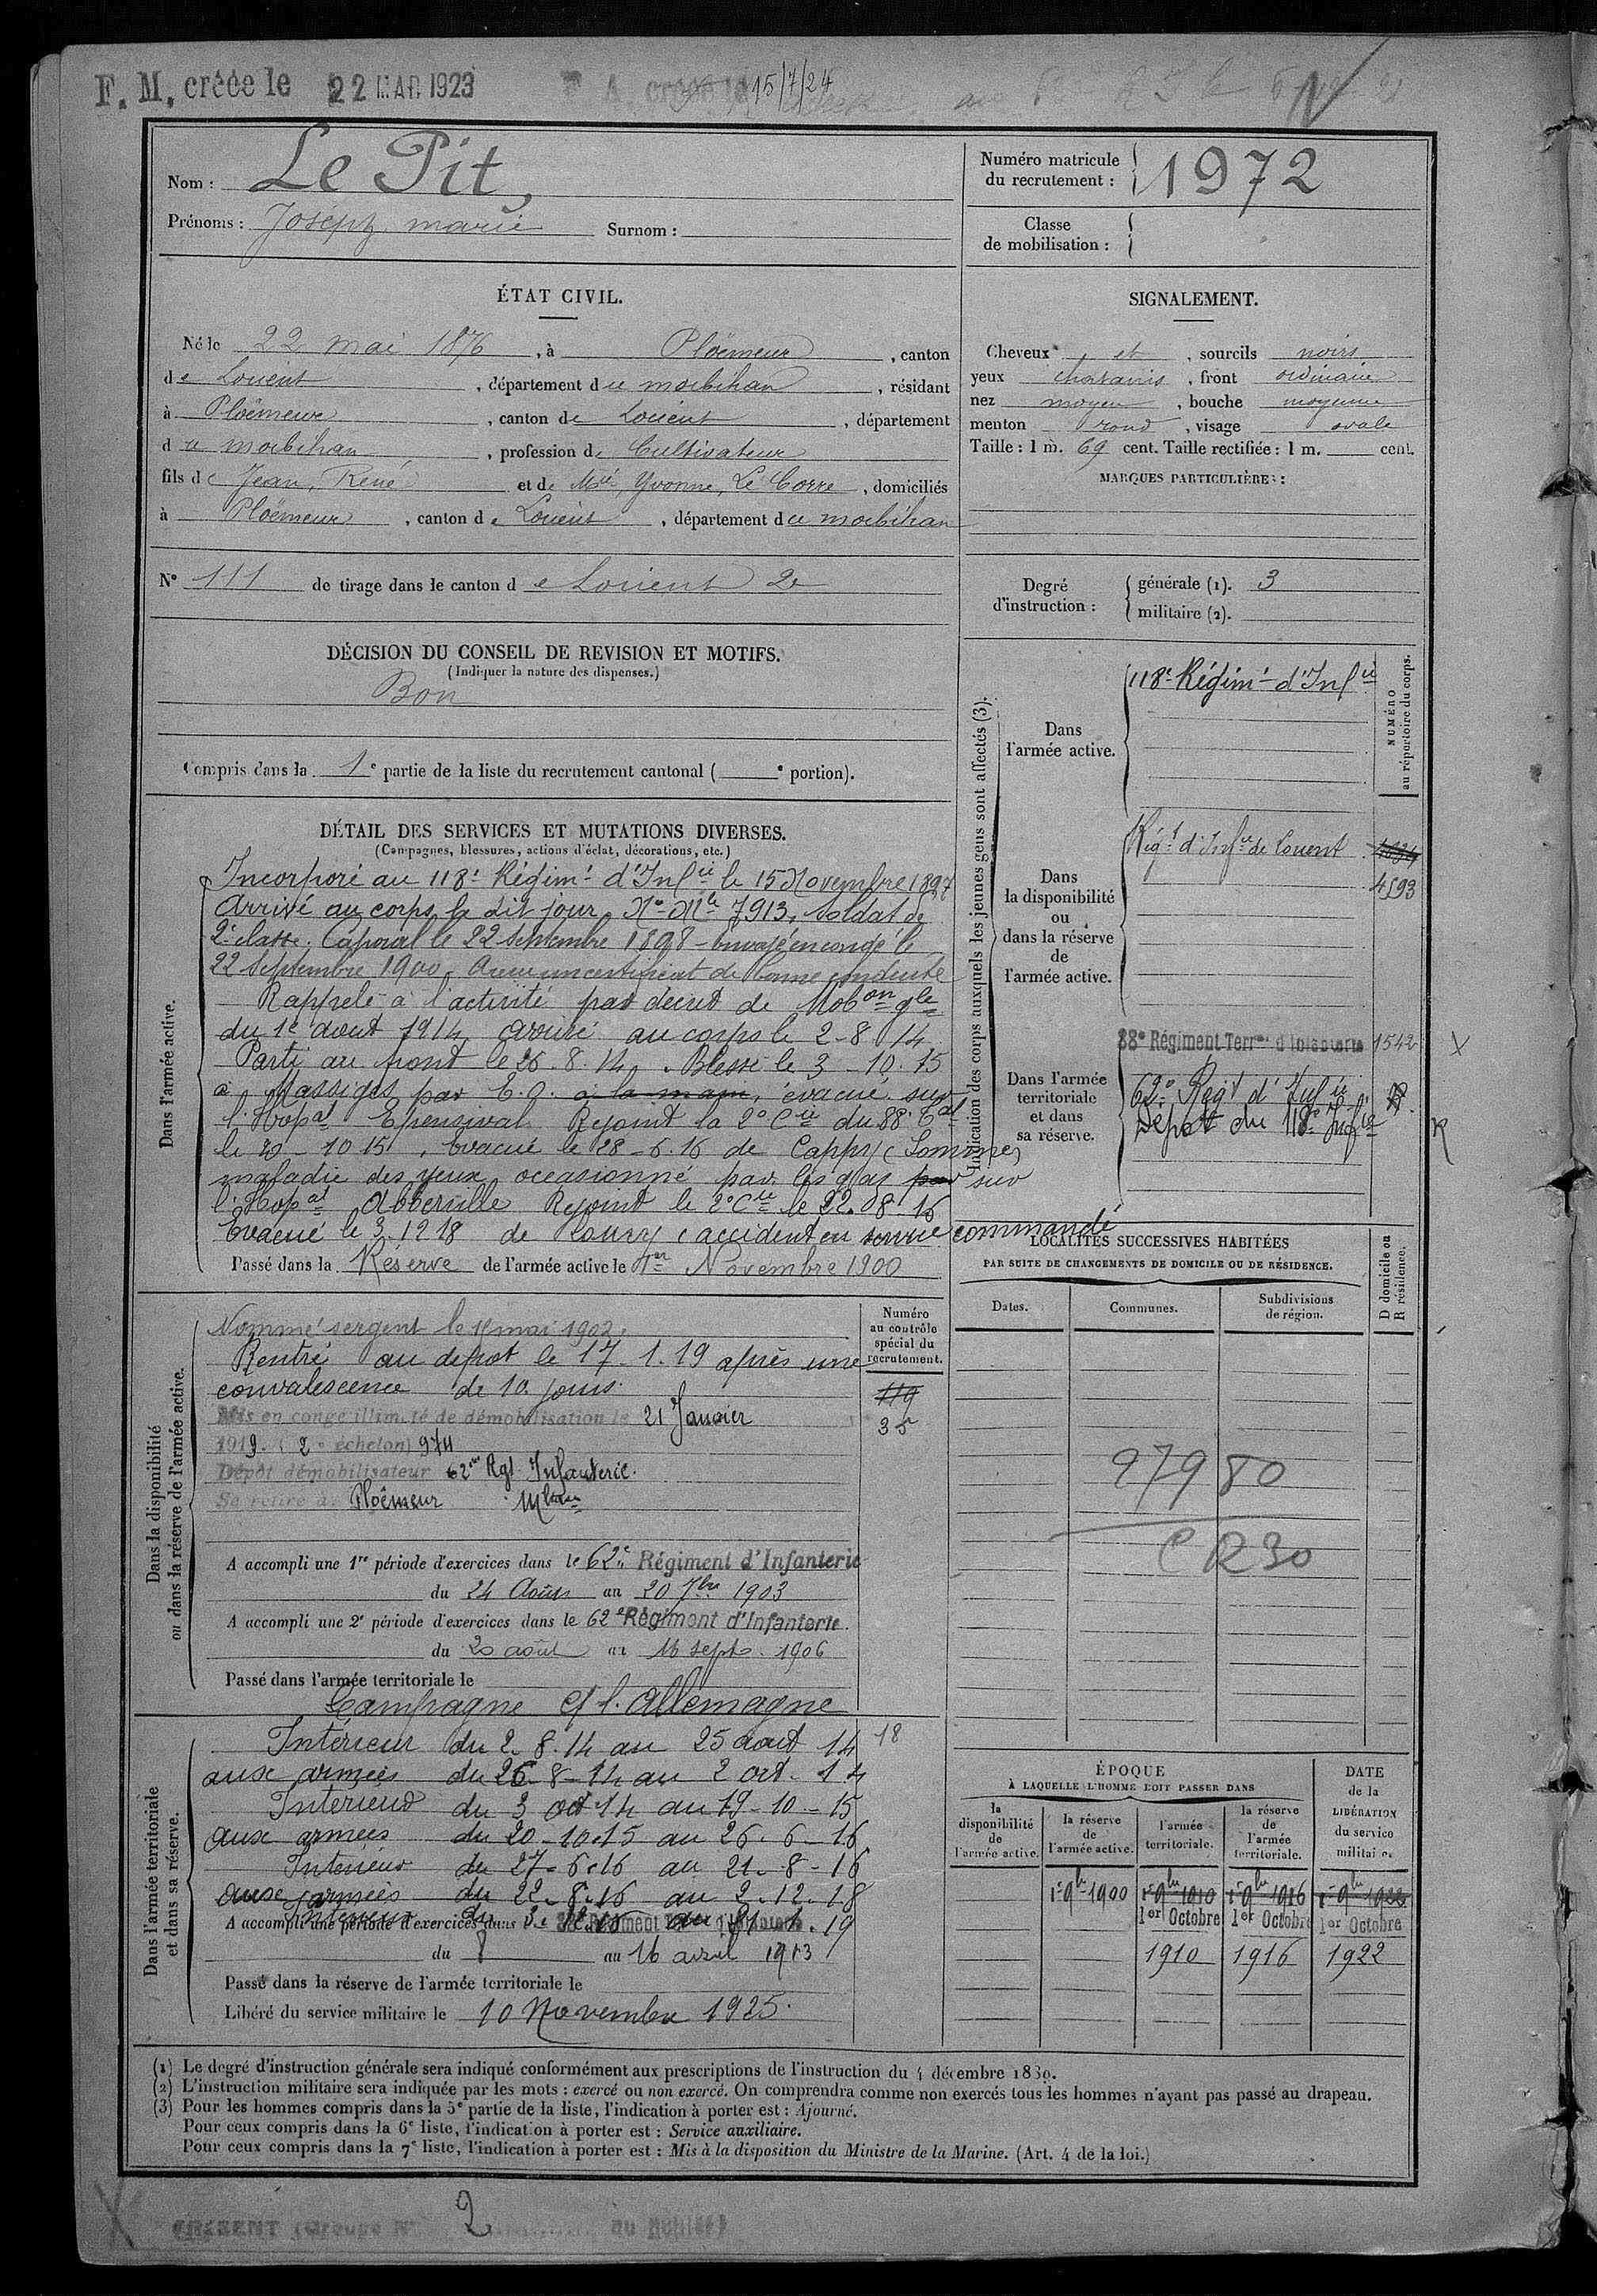 F. M. créée le 22 MAR 1923
15/7/24
Nom : Le Pit,
Prénoms : Joseph marie Surnom :
Numéro matricule du recrutement : 1972
Classe de mobilisation :
ÉTAT CIVIL.
Né le 22 mai 1876, à Ploëmeur, canton
de Lorient, département du morbihan, résidant
à Ploëmeur, canton de Lorient, département
du morbihan, profession de Cultivateur
fils de Jean, René et de Mie Yvonne, Le Corre, domiciliés
à Ploëmeur, canton de Lorient, département du morbihan
SIGNALEMENT.
Cheveux et, sourcils noirs
yeux chatains, front ordinaire
nez moyen, bouche moyenne
menton rond, visage ovale
Taille : 1 m. 69 cent. Taille rectifiée : 1 m. cent.
MARQUES PARTICULIÈRES :
N° 111 de tirage dans le canton de Lorient 2e
Degré d'instruction : générale (1). 3
militaire (2).
DÉCISION DU CONSEIL DE REVISION ET MOTIFS.
(Indiquer la nature des dispenses.)
Bon
Compris dans la 1e partie de la liste du recrutement cantonal ( e portion).
DÉTAIL DES SERVICES ET MUTATIONS DIVERSES.
(Campagnes, blessures, actions d'éclat, décorations, etc.)
Dans l'armée active.
Incorporé au 118e Régimt d'Infie le 15 Novembre 1897
Arrivé au corps le dit jour, No Mle 7913, soldat de
2e classe. Caporal le 22 septembre 1898 - Envoyé en congé le
22 Septembre 1900.
Rappelé à l'activité par décret de Mobon gle
du 1e aout 1914 arrivé au corps le 2-8 14
Parti au front le 26.8.14. Blessé le 3-10.15
à Massiges par E.O. à la main, évacué sur
l'Hopal Epensival Rejoint la 2e Cie du 88e Tal
le 20-10 15, Evacué le 28-6.16 de Cappy (Somme)
maladie des yeux occasionné par les gaz par sur
l'Hopal Abbeville Rejoint le 2e Cie le 22.08 16
Evacué le 3.12 18 de (accident en service commandé
Passé dans la Réserve de l'armée active le 1er Novembre 1900
Indication des corps auxquels les jeunes gens sont affectés (3).
NUMÉRO au répertoire du corps.
Dans l'armée active.
118e Régimt d'Infie
Dans la disponibilité ou dans la réserve de l'armée active.
Régt d'Infie de Lorient
4593
Dans l'armée territoriale et dans sa réserve.
88e Régiment Terrial d'Infanterie 1542 X
62e Régt d'Infie
Dépôt du 118e Infie R
Dans la disponibilité ou dans la réserve de l'armée active.
Nommé sergent le 1er mai 1902.
Rentré au dépot le 17.1.19 après une
convalescence de 10 jours.
Mis en congé illimité de démobilisation le 21 Janvier
1919. (2e échelon) 974
Dépôt démobilisateur 62me Rgt Infanterie.
Se retire à Ploëmeur Mban
Numéro au contrôle spécial du recrutement.
119
35
A accompli une 1re période d'exercices dans le 62e Régiment d'Infanterie
du 24 Août au 20 7bre 1903
A accompli une 2e période d'exercices dans le 62e Régiment d'Infanterie.
du 20 août au 16 sept. 1906
Passé dans l'armée territoriale le
Campagne c/ l'Allemagne
Dans l'armée territoriale et dans sa réserve.
Intérieur du 2.8.14 au 25 aout 14 18
aux armées du 26-8-14 au 2 oct. 14
Intérieur du 3 oct 14 au 19-10-15
aux armées du 20-10.15 au 26.6-16
Intérieur du 27-6.16 au 21.8-16
aux armées du 22.8.16 au 2.12.18
Intérieur du 3.
A accompli une période d'exercices dans
du 8 au 16 avril 1913
Passé dans la réserve de l'armée territoriale le
Libéré du service militaire le 10 Novembre 1925.
LOCALITÉS SUCCESSIVES HABITÉES
PAR SUITE DE CHANGEMENTS DE DOMICILE OU DE RÉSIDENCE.
Dates. Communes. Subdivisions de région. D domicile ou R résidence.
27980
CR30
ÉPOQUE
À LAQUELLE L'HOMME DOIT PASSER DANS
la disponibilité de l'armée active.
la réserve de l'armée active.
l'armée territoriale.
la réserve de l'armée territoriale.
DATE de la LIBÉRATION du service militaire.
1er 9bre 1900 1er 9bre 1910 1er 9bre 1916 1er 9bre 1922
1er Octobre 1er Octobre 1er Octobre
1910 1916 1922
(1) Le degré d'instruction générale sera indiqué conformément aux prescriptions de l'instruction du 4 décembre 1889.
(2) L'instruction militaire sera indiquée par les mots : exercé ou non exercé. On comprendra comme non exercés tous les hommes n'ayant pas passé au drapeau.
(3) Pour les hommes compris dans la 5e partie de la liste, l'indication à porter est : Ajourné.
Pour ceux compris dans la 6e liste, l'indication à porter est : Service auxiliaire.
Pour ceux compris dans la 7e liste, l'indication à porter est : Mis à la disposition du Ministre de la Marine. (Art. 4 de la loi.)
2